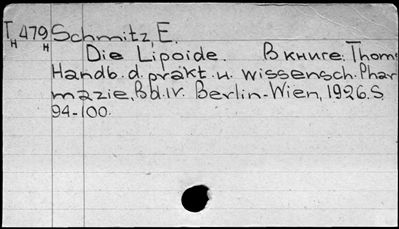 T 479 Schmitz, E.
н н
Die Lipoide. В книге: Thoms
Handb. d. prakt. и. wissensch. Phar
mazie, Bd. IV. Berlin-Wien, 1926. S.
94-100.